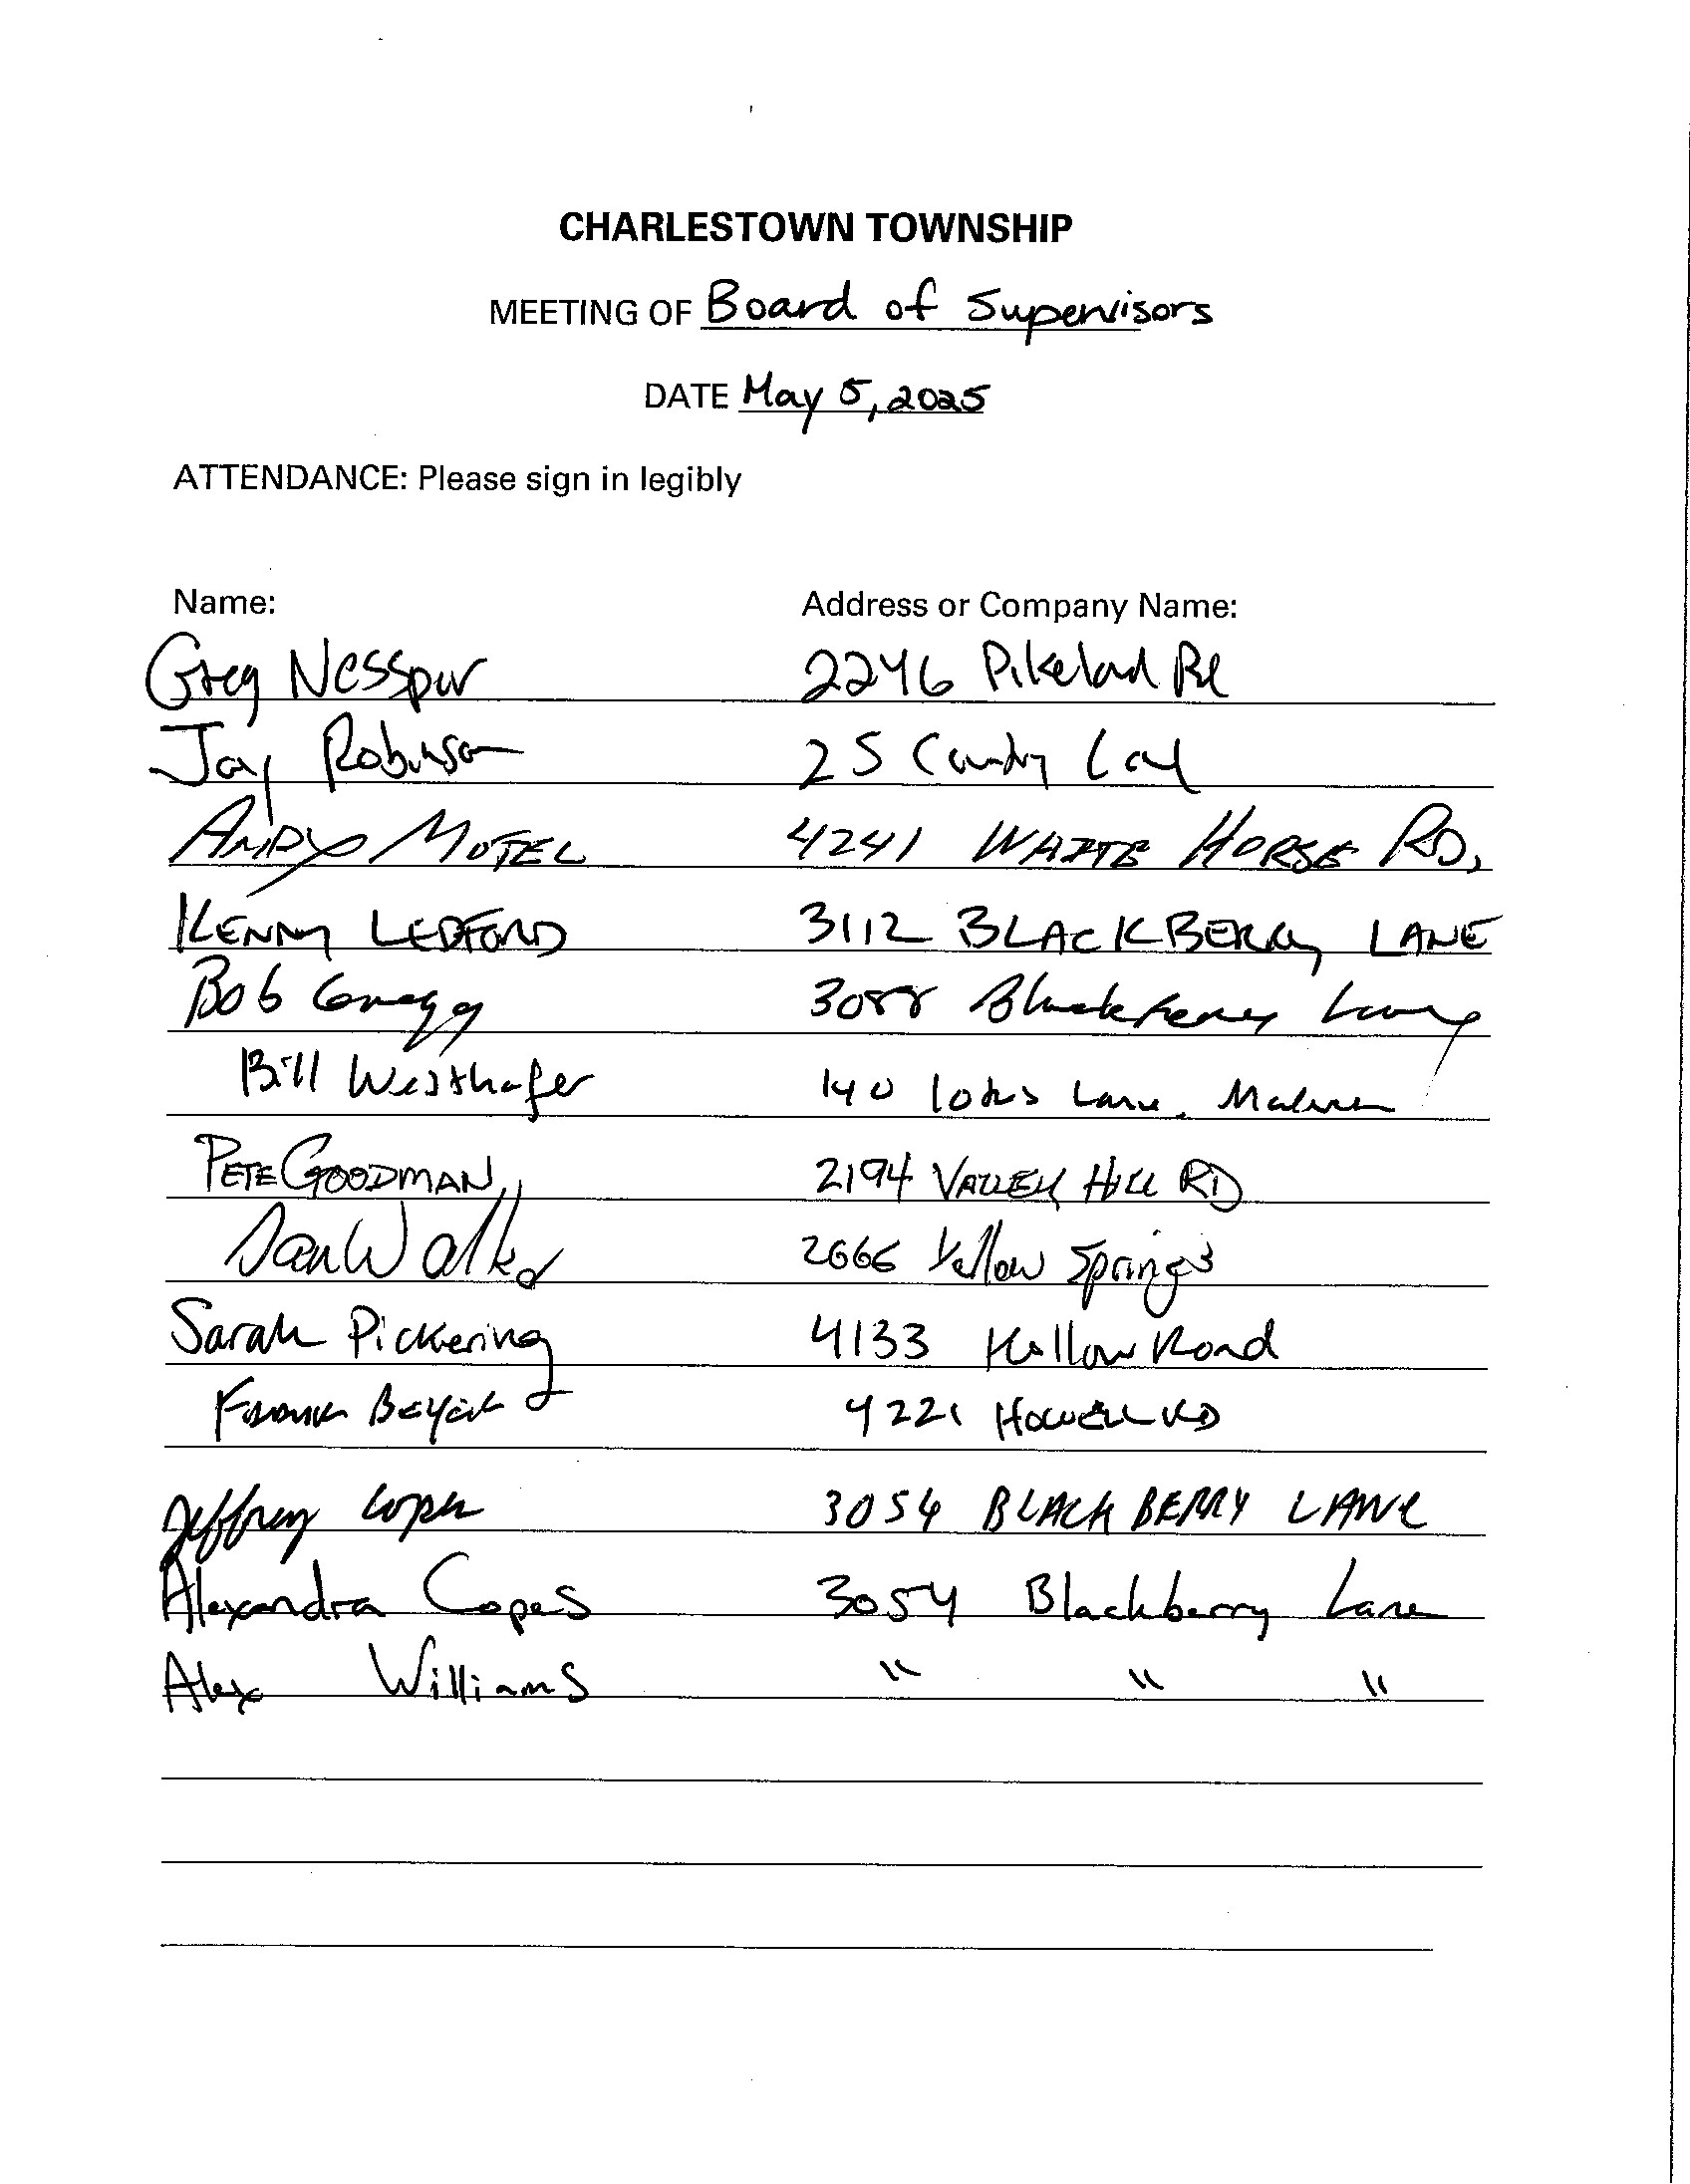 CHARLESTOWN TOWNSHIP
MEETING OF Board of Supervisors
DATE May 5, 2025
ATTENDANCE: Please sign in legibly
Name: Address or Company Name:
Greg Nesspor 2246 Pikeland Rd
Jay Robinson 25
ANDY MOTEL 4241 WHITE HORSE RD,
KENNY LEDFORD 3112 BLACKBERRY LANE
Bob Gregg 3088 Blackberry Lane
Bill Westhafer 140 Lotus Lane, Malvern
PETE GOODMAN 2194 VALLEY HILL RD
Walker 2666 Yellow Springs
Sarah Pickering 4133 Hollow Road
FRANK 4221 HOWELL RD
Jeffrey 3054 BLACKBERRY LANE
Alexandra Copes 3054 Blackberry Lane
Alex Williams " " "